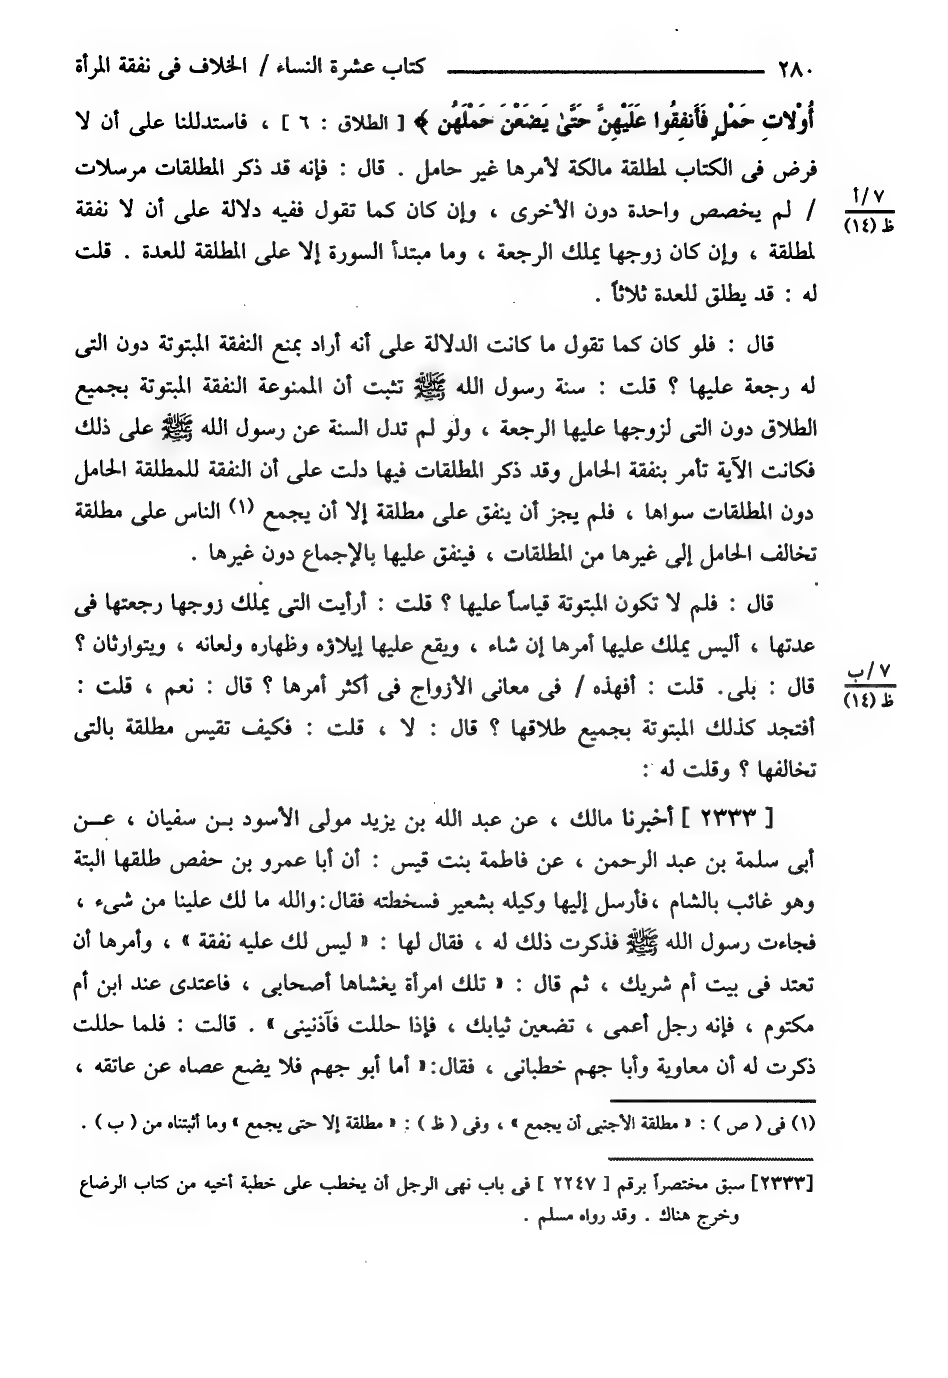 ٢٨٠ ـــــــــــــــــــــــــ كتاب عشرة النساء / الخلاف فى نفقة المرأة
أُوْلاتِ حَمْلٍ فَأَنفِقُوا عَلَيْهِنَّ حَتَّىٰ يَضَعْنَ حَمْلَهُن ﴾ [ الطلاق : ٦ ] ، فاستدللنا على أن لا
فرض فى الكتاب لمطلقة مالكة لأمرها غير حامل . قال : فإنه قد ذكر المطلقات مرسلات
/ لم يخصص واحدة دون الأخرى ، وإن كان كما تقول ففيه دلالة على أن لا نفقة
٧/أ
ظ (١٤)
لمطلقة ، وإن كان زوجها يملك الرجعة ، وما مبتدأ السورة إلا على المطلقة للعدة . قلت
له : قد يطلق للعدة ثلاثاً .
قال : فلو كان كما تقول ما كانت الدلالة على أنه أراد بمنع النفقة المبتوتة دون التى
له رجعة عليها ؟ قلت : سنة رسول الله ﷺ تثبت أن الممنوعة النفقة المبتوتة بجميع
الطلاق دون التى لزوجها عليها الرجعة ، ولو لم تدل السنة عن رسول الله ﷺ على ذلك
فكانت الآية تأمر بنفقة الحامل وقد ذكر المطلقات فيها دلت على أن النفقة للمطلقة الحامل
دون المطلقات سواها ، فلم يجز أن ينفق على مطلقة إلا أن يجمع (١) الناس على مطلقة
تخالف الحامل إلى غيرها من المطلقات ، فينفق عليها بالإجماع دون غيرها .
قال : فلم لا تكون المبتوتة قياساً عليها ؟ قلت : أرأيت التى يملك زوجها رجعتها فى
عدتها ، أليس يملك عليها أمرها إن شاء ، ويقع عليها إيلاؤه وظهاره ولعانه ، ويتوارثان ؟
قال : بلى. قلت : أفهذه / فى معانى الأزواج فى أكثر أمرها ؟ قال : نعم ، قلت :
٧/ب
ظ (١٤)
أفتجد كذلك المبتوتة بجميع طلاقها ؟ قال : لا ، قلت : فكيف تقيس مطلقة بالتى
تخالفها ؟ وقلت له :
[ ٢٣٣٣ ] أخبرنا مالك ، عن عبد الله بن يزيد مولى الأسود بـن سفيان ، عـــن
أبى سلمة بن عبد الرحمن ، عن فاطمة بنت قيس : أن أبا عمرو بن حفص طلقها البتة
وهو غائب بالشام ،فأرسل إليها وكيله بشعير فسخطته فقال:والله ما لك علينا من شىء ،
فجاءت رسول الله ﷺ فذكرت ذلك له ، فقال لها : « ليس لك عليه نفقة » ، وأمرها أن
تعتد فى بيت أم شريك ، ثم قال : « تلك امرأة يغشاها أصحابى ، فاعتدى عند ابن أم
مكتوم ، فإنه رجل أعمى ، تضعين ثيابك ، فإذا حللت فآذنينى » . قالت : فلما حللت
ذكرت له أن معاوية وأبا جهم خطبانى ، فقال:« أما أبو جهم فلا يضع عصاه عن عاتقه ،
(١) فى ( ص ) : « مطلقة الأجنبى أن يجمع » ، وفى ( ظ ) : « مطلقة إلا حتى يجمع » وما أثبتناه من ( ب ) .
[٢٣٣٣] سبق مختصراً برقم [ ٢٢٤٧ ] فى باب نهى الرجل أن يخطب على خطبة أخيه من كتاب الرضاع
وخرج هناك . وقد رواه مسلم .